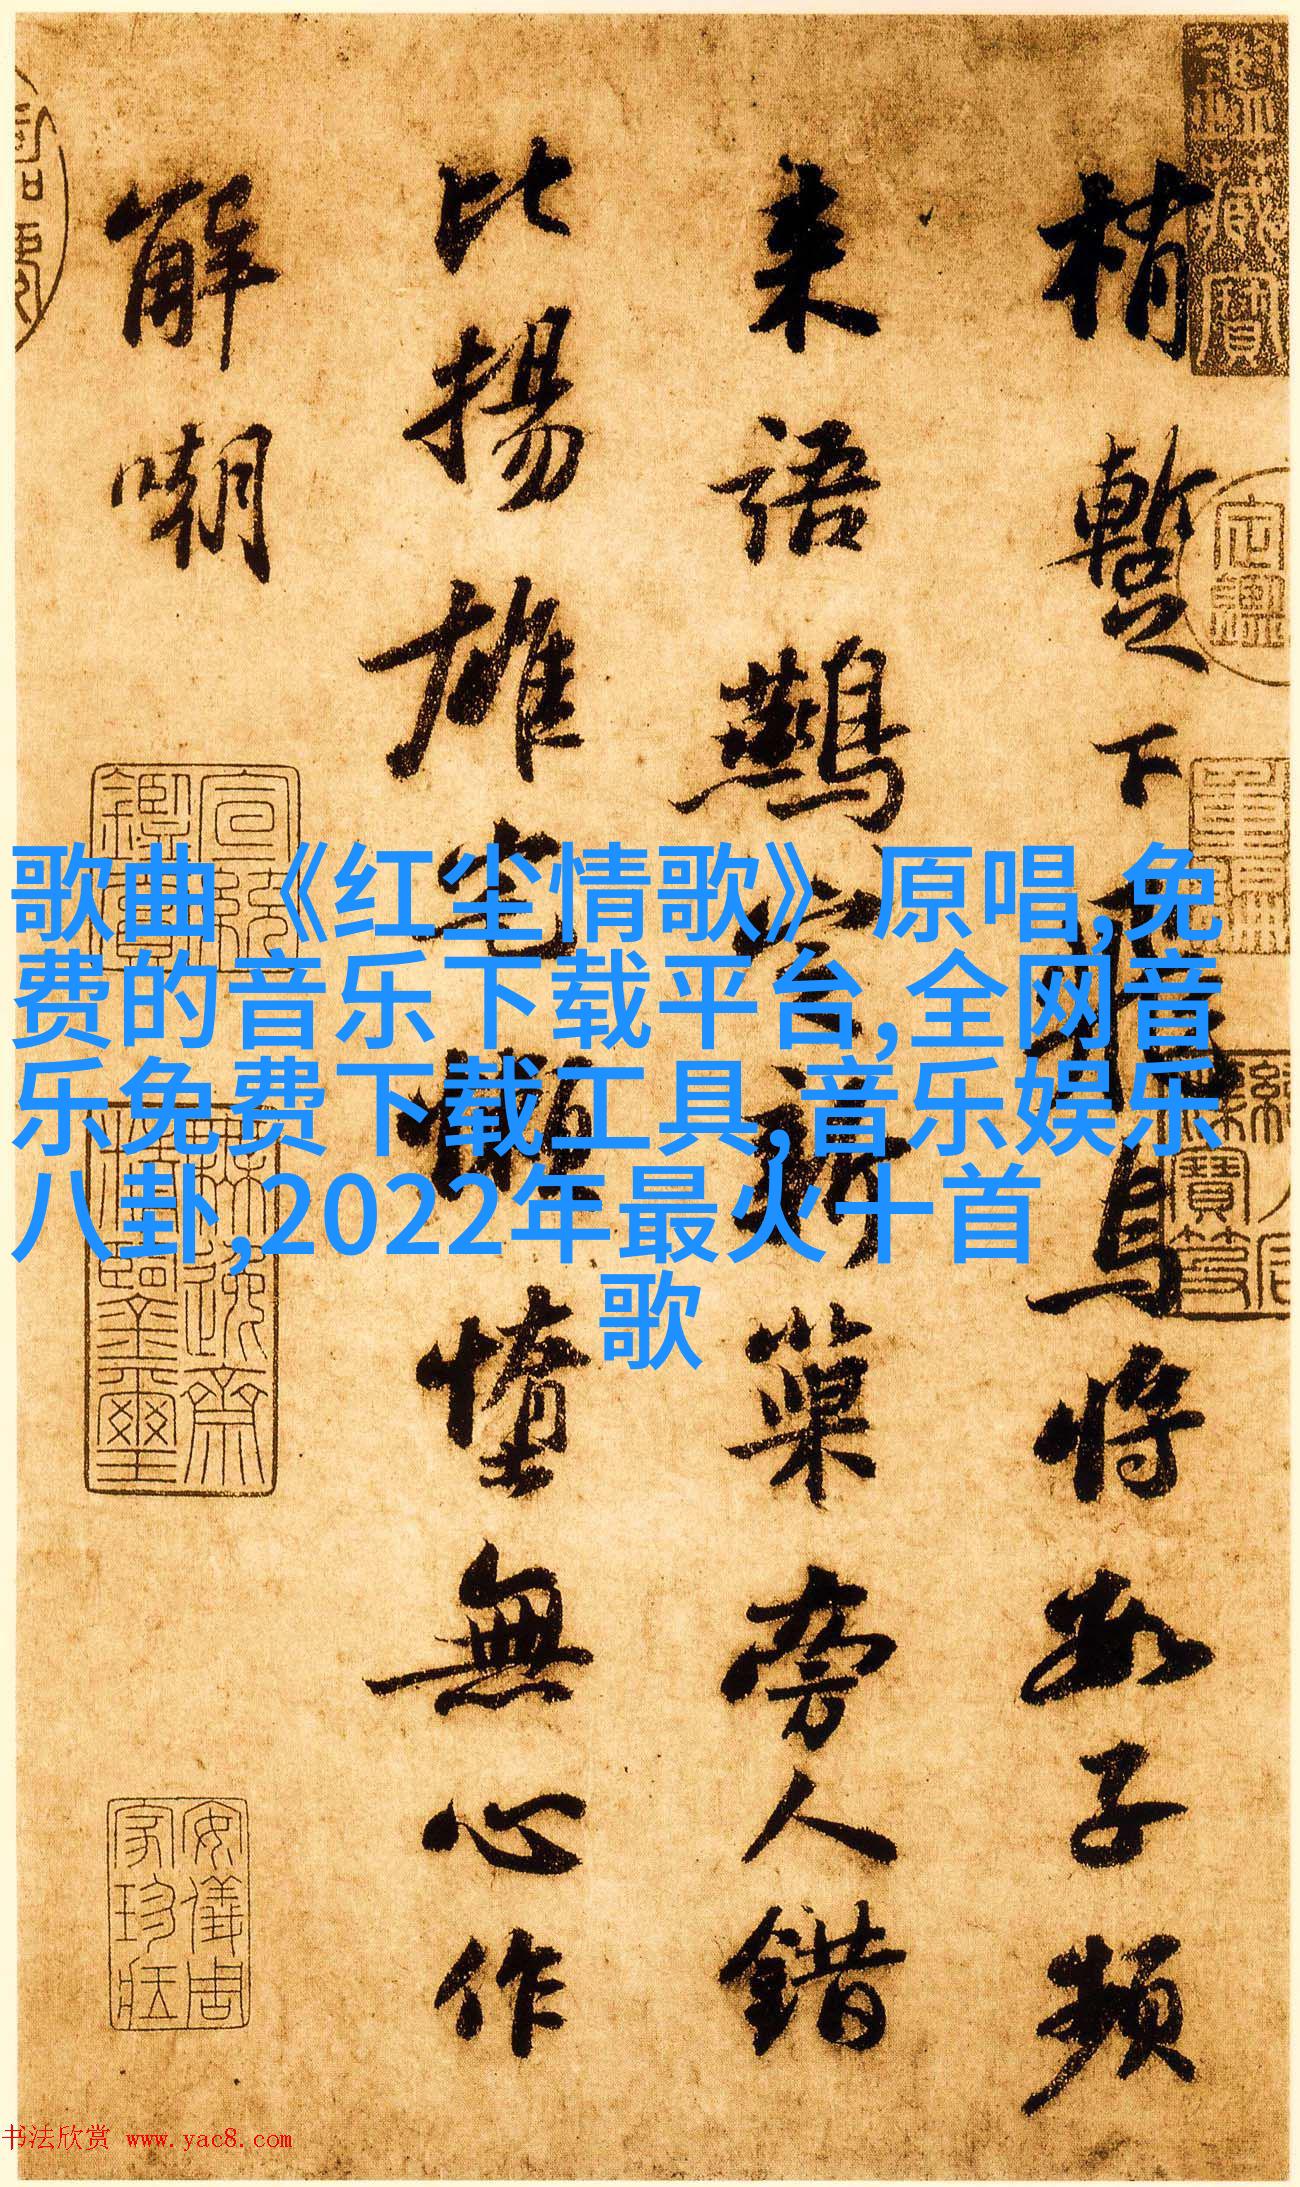 梢暫下飛烏將數子頻
来語鷰定新巢旁人錯
比揚雄宅懶惰無心作
解嘲
歌曲《红尘情歌》原唱,免
费的音乐下载平台,全网音
乐免费下载工具,音乐娱乐
八卦,2022年最火十首
歌
书法欣赏 www.yac8.com